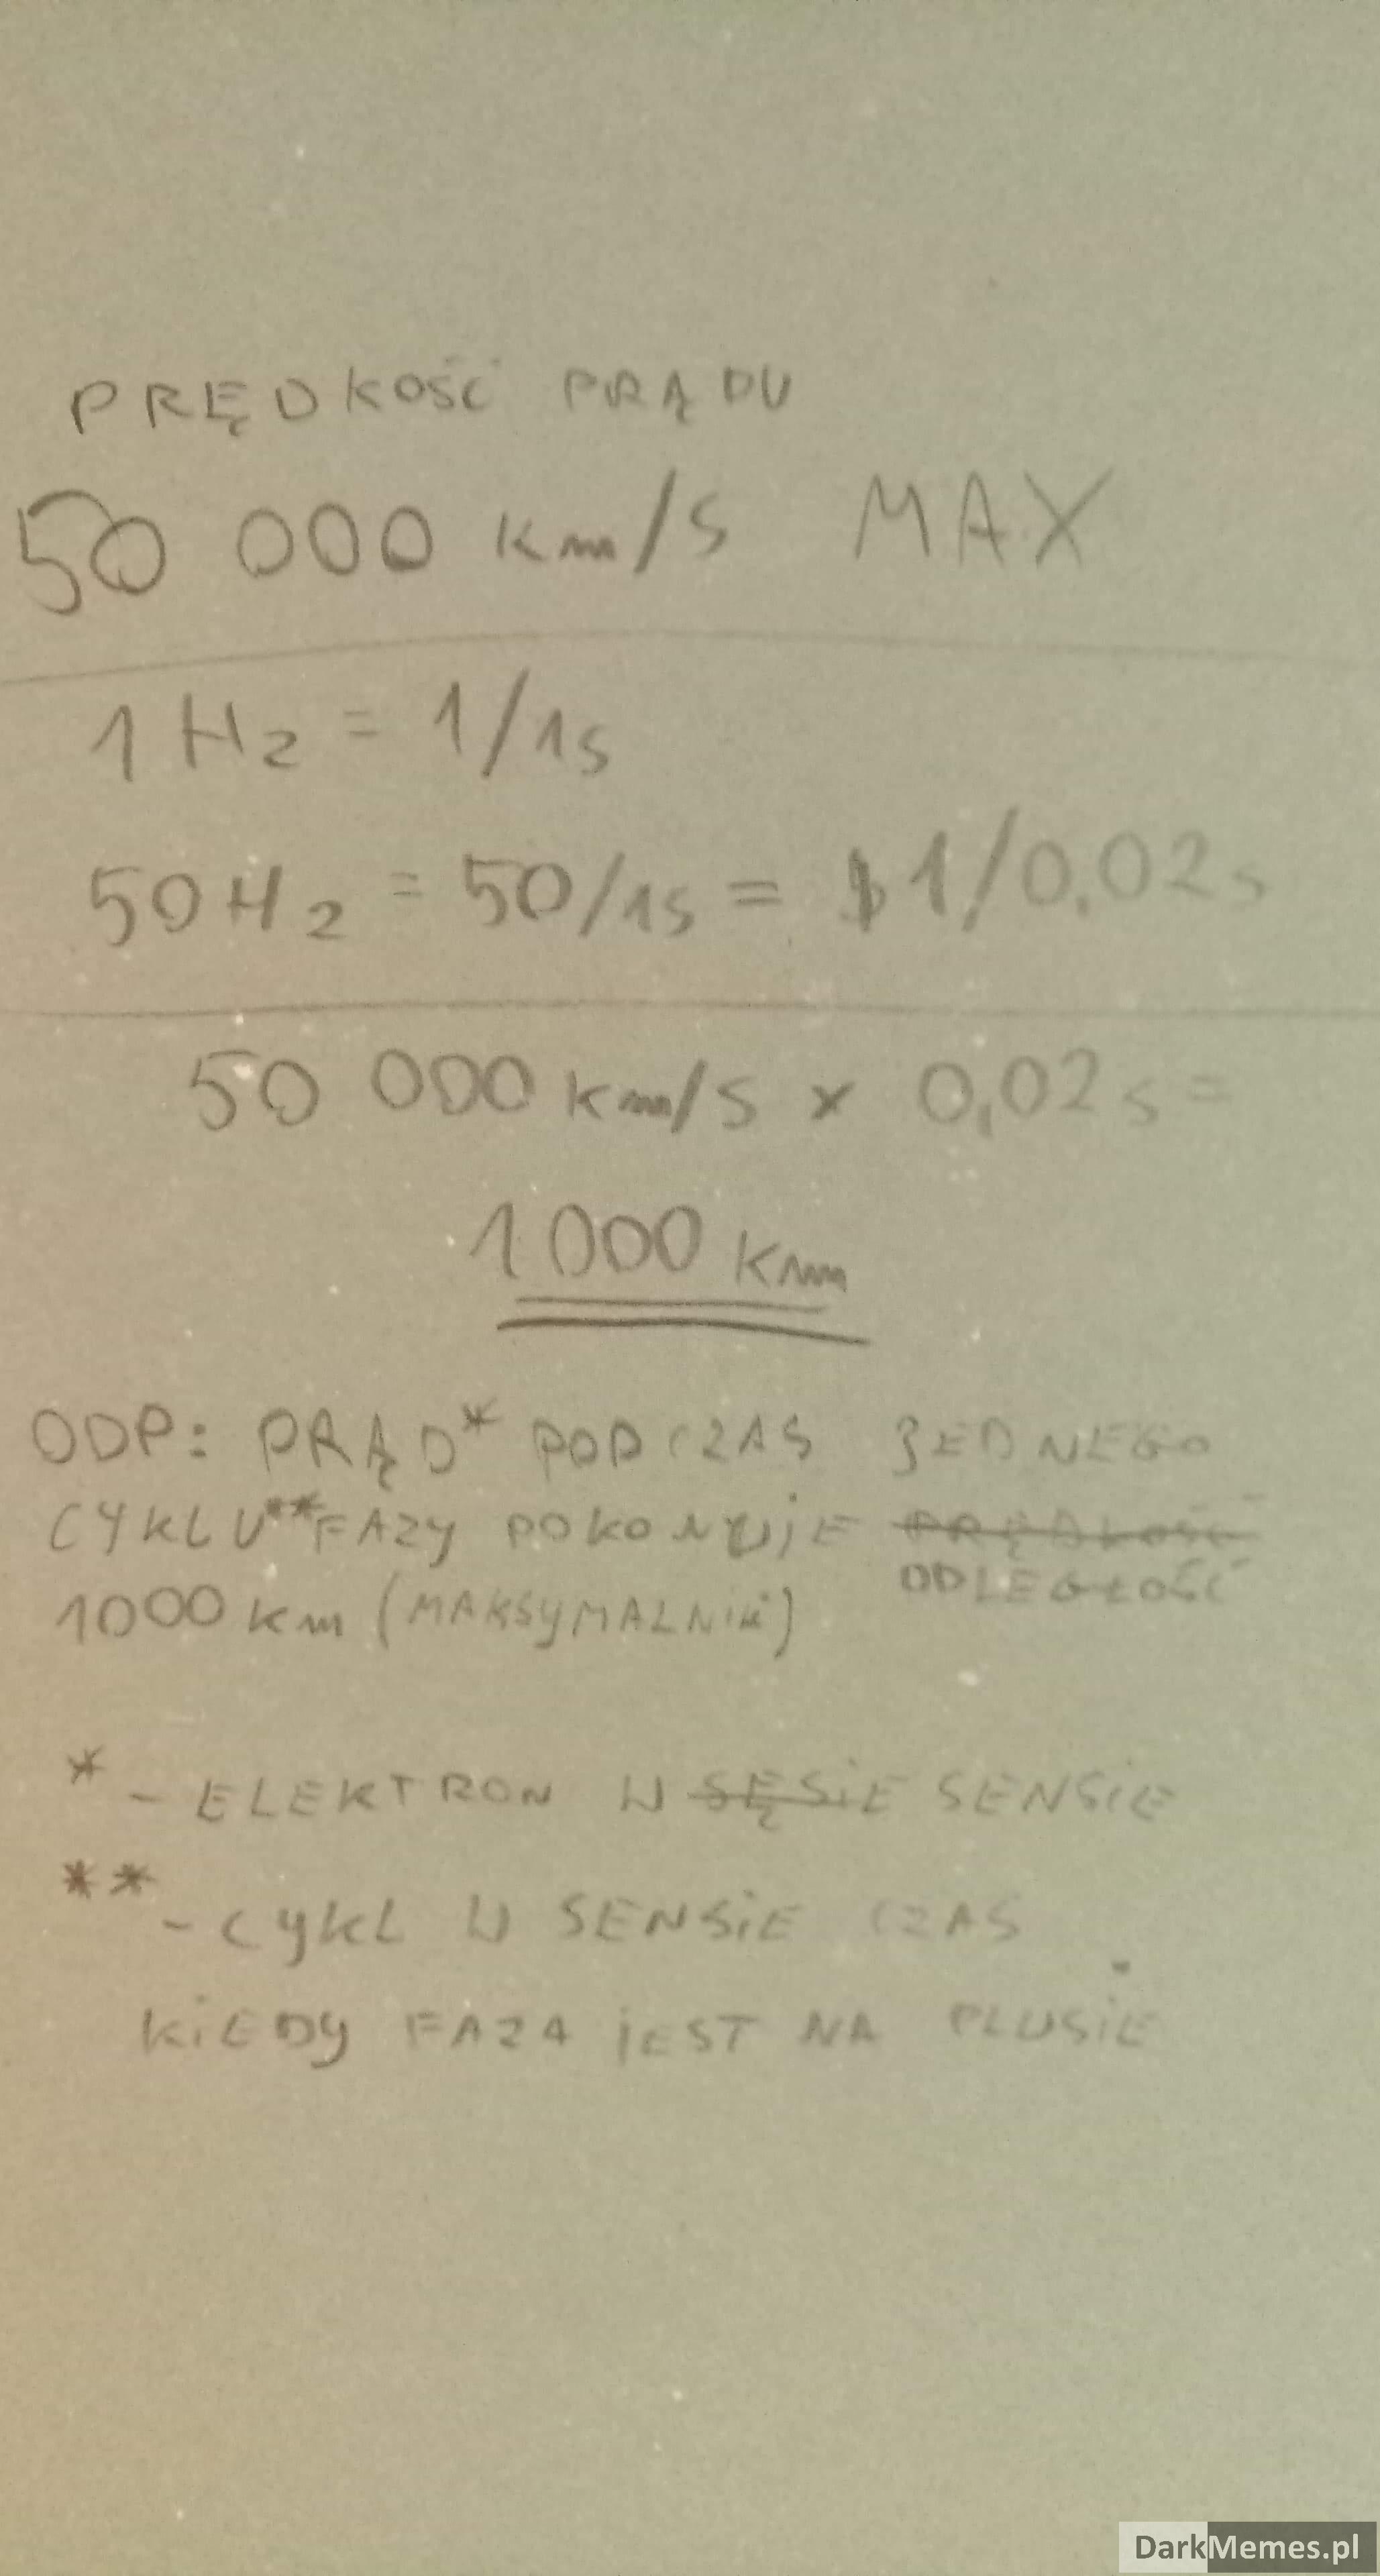 PRĘDKOŚĆ PRĄDU
50 000 km/s MAX
1 Hz = 1/1s
50 Hz = 50/1s = 1/0,02s
50 000 km/s x 0,02s =
1000 km
ODP: PRĄD* PODCZAS JEDNEGO
CYKLU** FAZY POKONUJE PRĘDKOŚĆ
ODLEGŁOŚĆ
1000 km (MAKSYMALNIE)
* - ELEKTRON W SĘSIE SENSIE
** - CYKL W SENSIE CZAS
KIEDY FAZA JEST NA PLUSIE
DarkMemes.pl